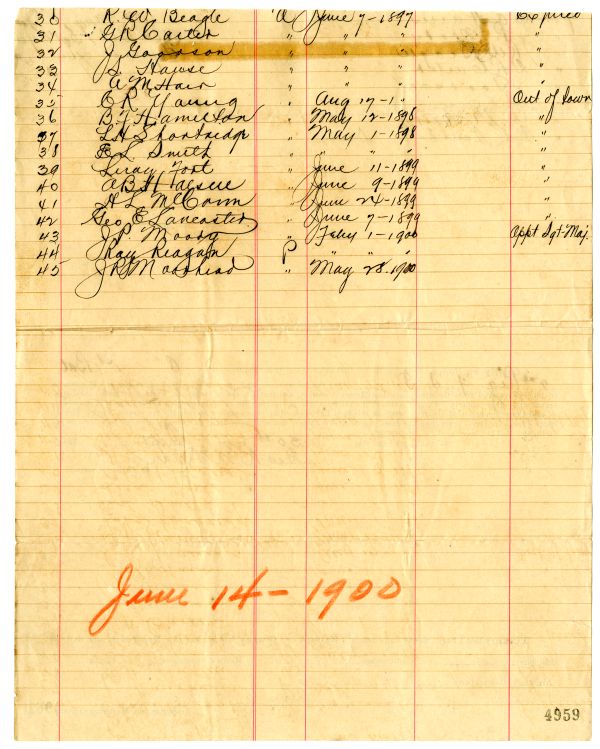 30 R. W. Beagle A June 7-1897 Expired
31 G R Carter " " " "
32 J. Goodson " " " "
33 L Hawse " " " "
34 A. M. Hair " " " "
35 C R Young " Aug 17-1 Out of Town
36 B. F. Hamilton " May 12-1898 "
37 L H Shortridge " May 1-1898 "
38 E. L. Smith " " " "
39 Leroy Fort " June 11-1899 "
40 A B " June 9-1899 "
41 H L McCorm " June 24-1899 "
42 Geo E Lancaster " June 7-1899 "
43 J. P. Moody " Feby 1-1900 Appt Sgt-Maj.
44 Ray Reagan P " "
45 J R Moorhead " May 28-1900
June 14-1900
4959